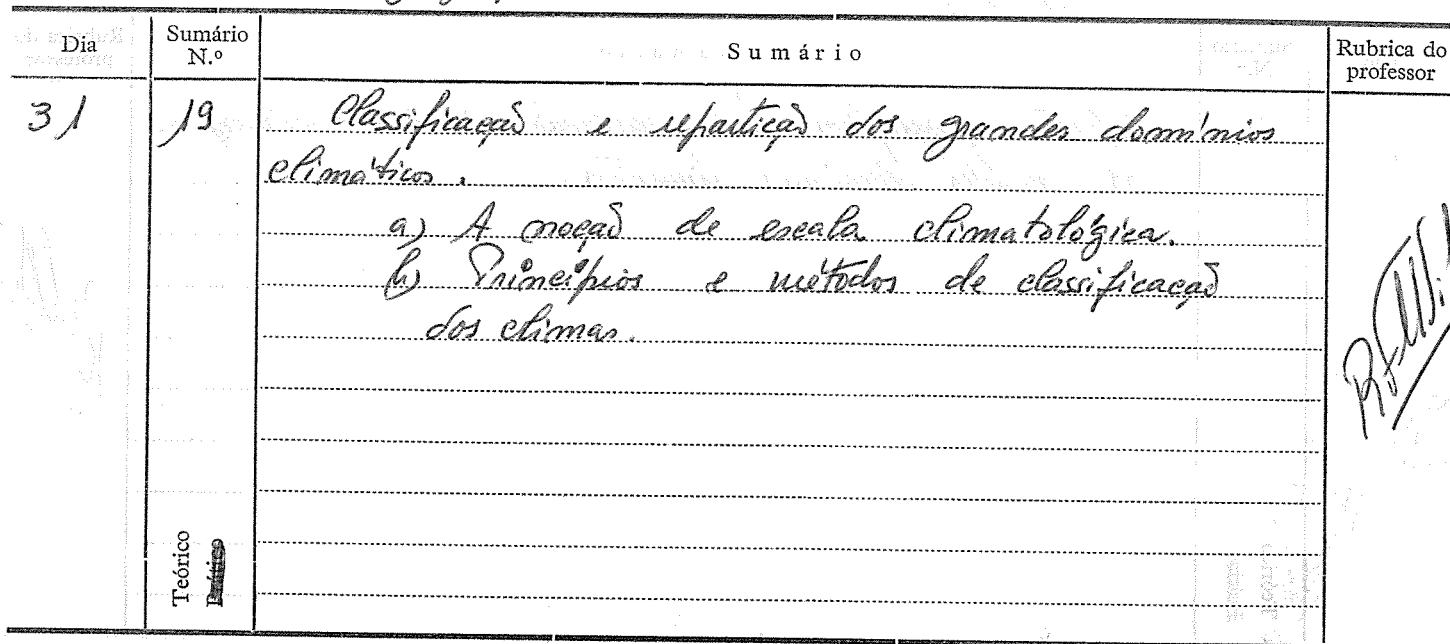 Dia
Sumário N.º
Sumário
Rubrica do professor
31
19
Classificação e repartição dos grandes domínios
climáticos.
a) A noção de escala climatológica.
b) Princípios e métodos de classificação
dos climas.
Teórico
Prático